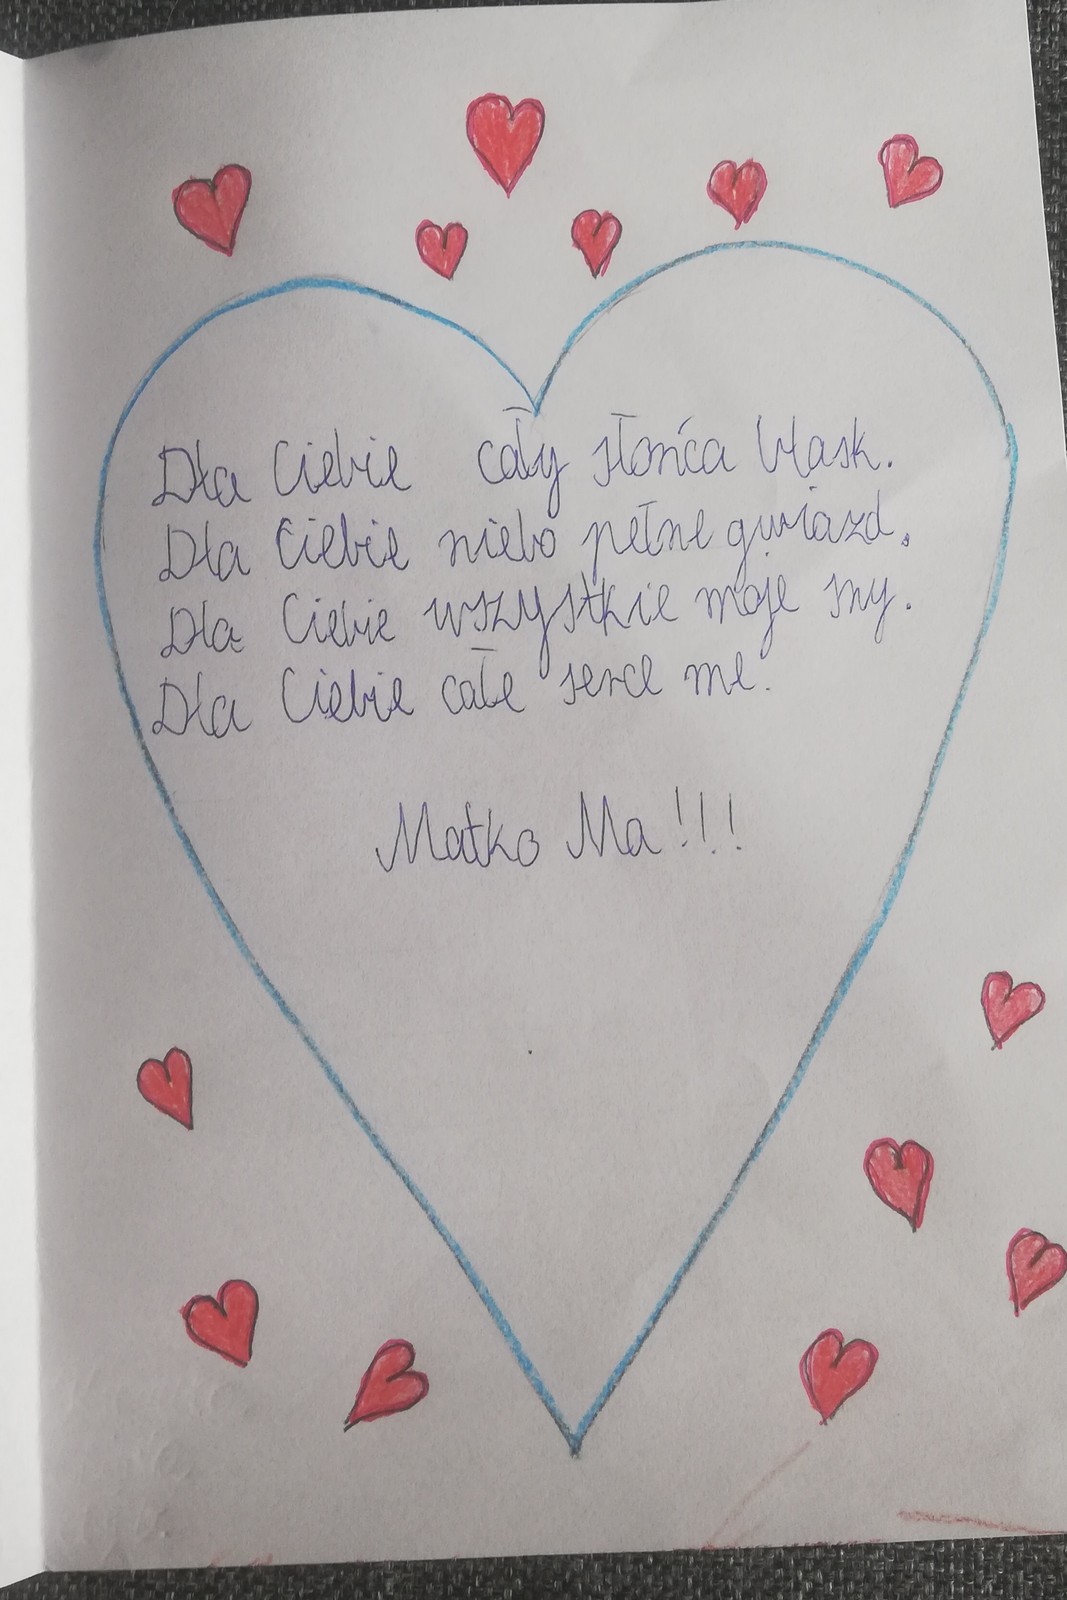 Dla Ciebie cały słońca blask.
Dla Ciebie niebo pełne gwiazd.
Dla Ciebie wszystkie moje sny.
Dla Ciebie całe serce me.
Matko Ma!!!